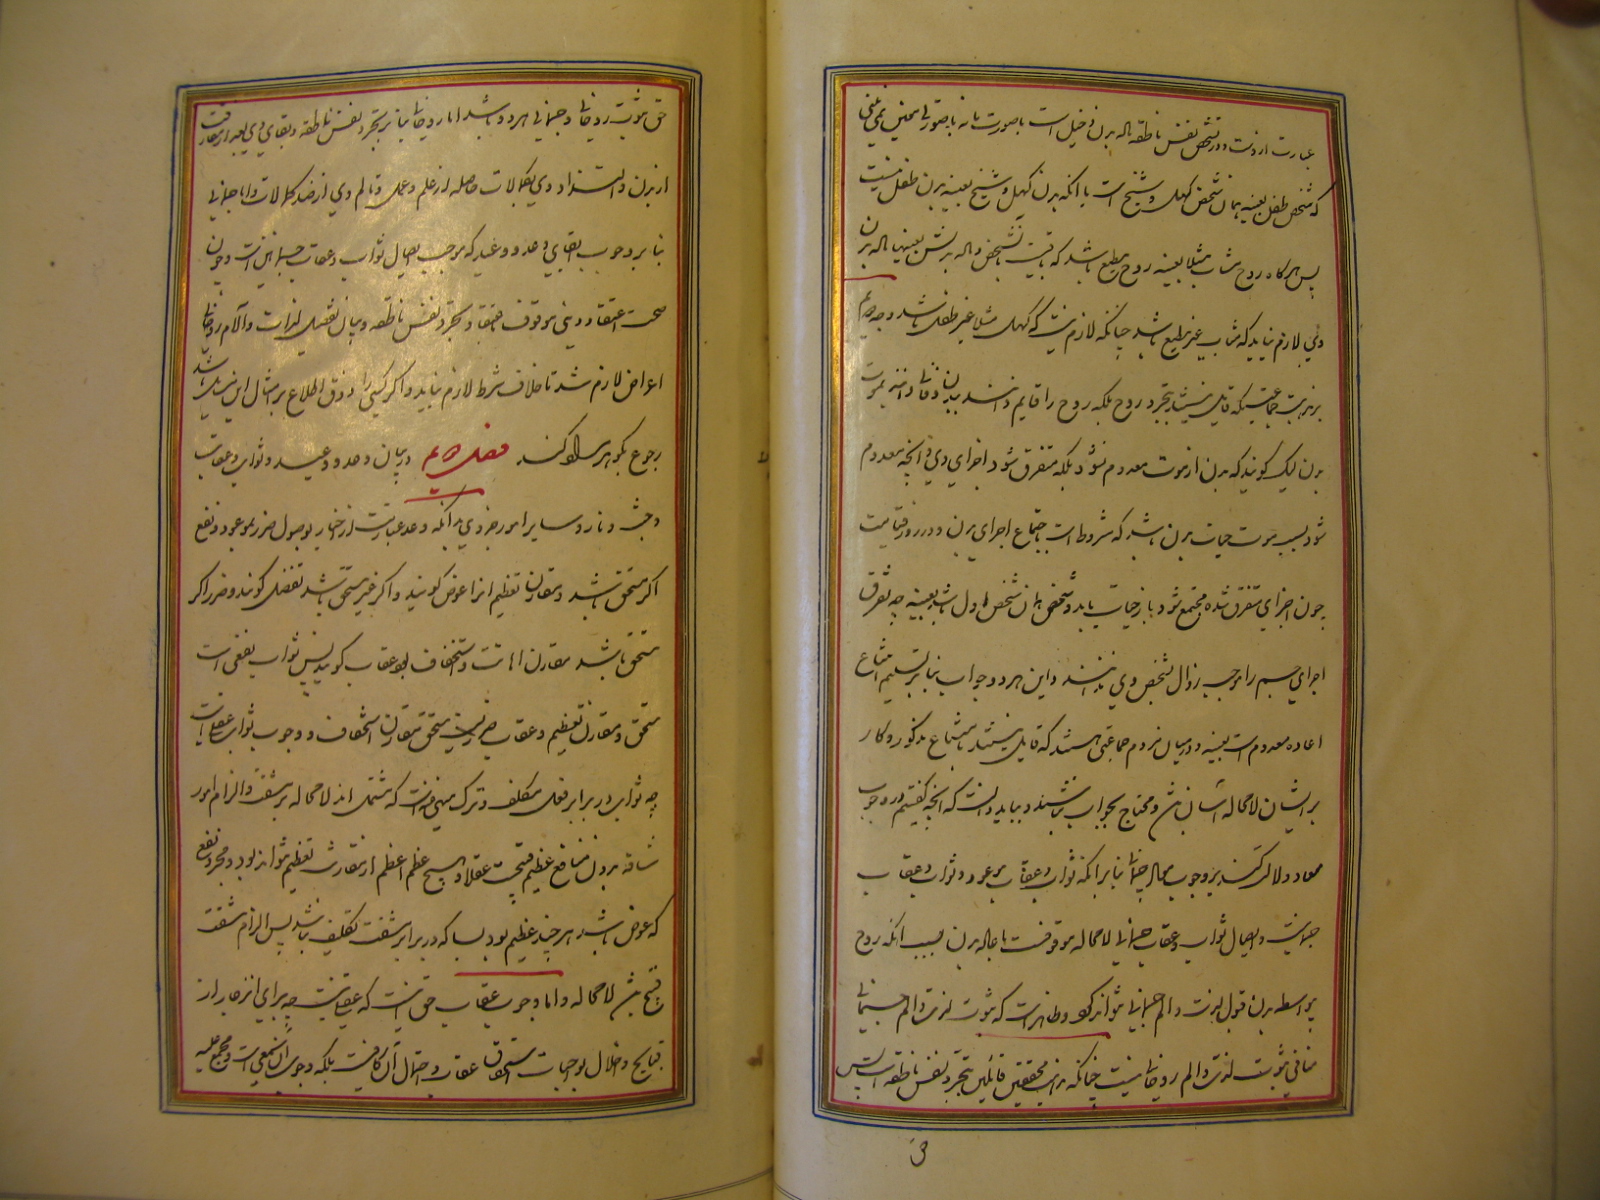 عبارت از ذات و در تشخص نفس ناطقه نه بدن دخیل است نه صورت
که شخص طفل بعینه همان شخص کهل و شیخ است با آنکه بدن کهل و شیخ بعینه بدن طفل نیست
پس هرگاه روح شاب مثلا بعینه روح مطیع باشد که باقیست تشخص و اله بدنش بعینها اله بدن
وی لازم نیاید که مثاب غیر مطیع باشد چنانکه لازم نیست که کهل مثلا غیر طفل باشد وجه دوم
بر مذهب جماعتیکه قایل نیستند بتجرد روح بلکه روح را قایم دانند ببدن و فانی دانند بموت
بدن لیک گویند که بدن از موت معدوم نشود بلکه متفرق شود اجزای وی و آنچه معدوم
شود بسبب موت حیات بدن باشد که مشروط است باجتماع اجزای بدن و در روز قیامت
چون اجزای متفرق شده مجتمع شود باز حیات یابد و شخص همان شخص اول باشد بعینه چه تفرق
اجزای جسم را موجب زوال تشخص وی ندانند و این هر دو جواب بنا بر تسلیم امتناع
اعاده معدوم است بعینه و در میان مردم جماعتی هستند که قایل نیستند بامتناع مذکور و کار
بر ایشان لامحاله آسان باشد و محتاج بجواب نباشند و بباید دانست که آنچه گفتیم در وجوب
معاد دلالت کند بر وجوب معاد جسمانی بنا بر آنکه ثواب و عقاب موعود و ثواب و عقاب
جسمانیست و ایصال ثواب و عقاب جسمانی لامحاله موقوفست باعاده بدن بسبب آنکه روح
بیواسطه بدن قبول لذت و الم جسمانی نتواند کرد و ظاهر است که ثبوت لذت و الم جسمانی
منافی ثبوت لذت و الم روحانی نیست چنانکه مذهب محققین قائلین بتجرد نفس ناطقه است پس
حق ثبوت روحانی و جسمانی هر دو باشد اما روحانی بنا بر تجرد نفس ناطقه و بقای وی بعد از مفارقت
از بدن و التذاذ وی بکمالات حاصله از علم و عمل و تالم وی از ضد کمالات و اما جسمانی
بنا بر وجوب ایفای وعد و وعید که موجب ایصال ثواب و عقاب جسمانیین است و چون
صحت اعتقاد دینی موقوف باعتقاد بتجرد نفس ناطقه و بیان تفصیل لذات و آلام روحانی
اعراض لازم شد تا خلاف شرط لازم نیاید و اگر کسی را ذوق اطلاع بر امثال این باشد
رجوع بگوهر مراد کند فصل دویم در بیان وعد و وعید و ثواب و عقاب
و جنت و نار و سایر امور اخروی بدانکه وعد عبارتست از اخبار بوصول ضرر موعود و نفع
اگر مستحق باشد و مقارن تعظیم آنرا عوض گویند و اگر غیر مستحق باشد تفضل گویند و ضرر اگر
مستحق باشد مقارن اهانت و استخفاف بود عقاب گویند پس ثواب نفعی است
مستحق و مقارن تعظیم و عقاب ضرریست مستحق مقارن استخفاف و وجوب ثواب عقلیست
چه ثواب در برابر فعل مکلف و ترک منهی عنه است که مشتمل‌اند لامحاله بر مشقت و الزام امور
شاقه بدون منافع عظیم قبیحست عقلا و هیچ عظم اعظم از مقارنت تعظیم نتواند بود و مجرد نفع
که عوض باشد هر چند عظیم بود بسا که در برابر مشقت تکلیف نباشد پس الزام مشقت
قبیح باشد لامحاله و اما وجوب عقاب حق آنست که عقلی نیست چه برای انزجار از
قبایح و اخلال بواجبات استحقاق عقاب و احتمال آن کافیست بلکه وجوب آن سمعی است و مجمع علیه